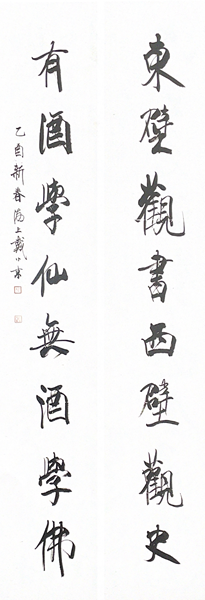 東壁觀書西壁觀史
有酒學仙無酒學佛
乙酉新春海上戴小京